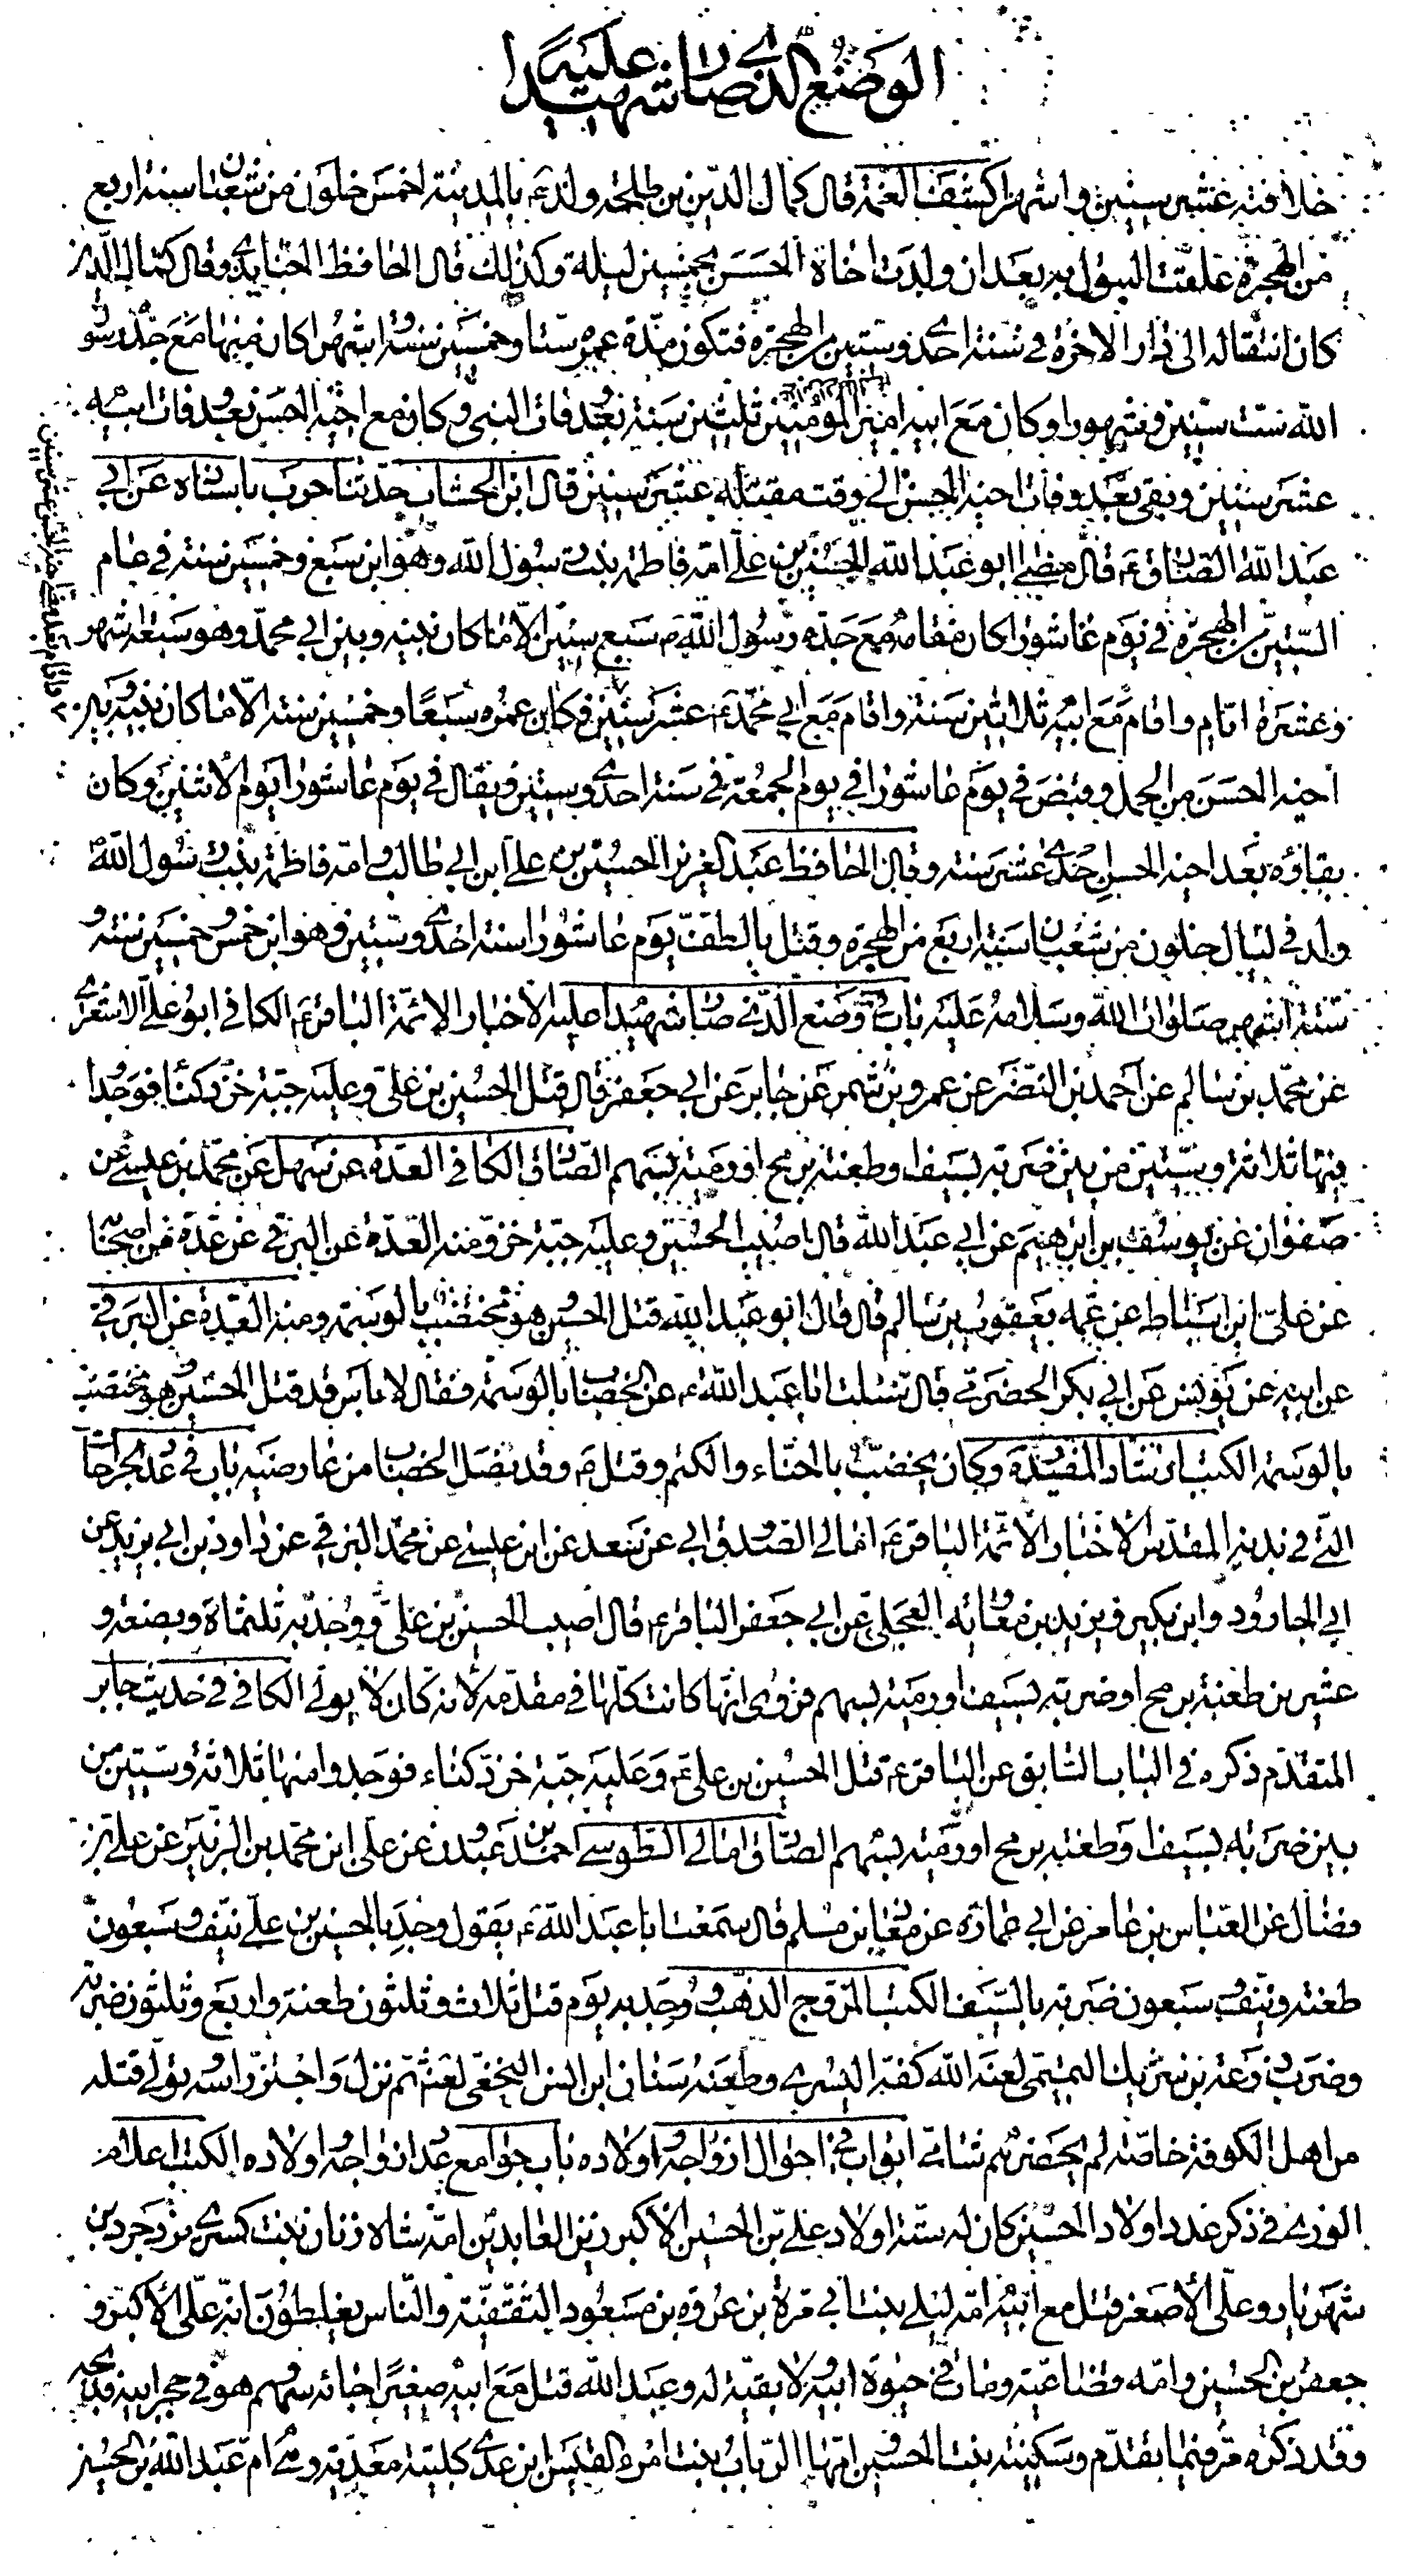 الوضع الذي صار شهيدا عليه
خلافته عشر سنين واشهرا كشف الغمة قال كمال الدين بن طلحة ولد ع بالمدينة لخمس خلون من شعبان سنة اربع
من الهجرة علقت البتول به بعد ان ولدت اخاه الحسن بخمسين ليلة وكذلك قال الحافظ الجنابذي وقال كمال الدين
كان انتقاله الى دار الاخرة في سنة احدى وستين من الهجرة فتكون مدة عمره ستا وخمسين سنة واشهرا كان منها مع جده رسول
الله ست سنين وشهورا وكان مع ابيه امير المومنين ثلثين سنة بعد وفات النبي وكان مع اخيه الحسن بعد وفات ابيه
عشر سنين وبقي بعد وفات اخيه الحسن الى وقت مقتله عشر سنين قال ابن الخشاب حدثنا حرب باسناده عن ابي
عبد الله الصادق ع قال مضى ابو عبد الله الحسين بن علي امه فاطمة بنت رسول الله وهو ابن سبع وخمسين سنة في عام
الستين من الهجرة في يوم عاشورا كان مقامه مع جده رسول الله ص سبع سنين الا ما كان بينه وبين ابي محمد وهو سبعة اشهر
وعشرة ايام واقام مع ابيه ثلاثين سنة واقام مع ابي محمد ع عشر سنين فكان عمره سبعا وخمسين سنة الا ما كان بينه وبين
اخيه الحسن من الحمل وقبض في يوم عاشورا في يوم الجمعة في سنة احدى وستين ويقال في يوم عاشورا يوم الاثنين وكان
بقاؤه بعد اخيه الحسن احدى عشر سنة وقال الحافظ عبد العزيز الحسين بن علي ابن ابي طالب وامه فاطمة بنت رسول الله
ولد في ليال خلون من شعبان سنة اربع من الهجرة وقتل بالطف يوم عاشورا سنة احدى وستين وهو ابن خمس وخمسين سنة و
ستة اشهر صلوات الله وسلامه عليه باب وضع الذي صار شهيدا عليه الاخبار الائمة الباقر ع الكافي ابو علي الاشعري
عن محمد بن سالم عن احمد بن النضر عن عمرو بن شمر عن جابر عن ابي جعفر قال قتل الحسين بن علي وعليه جبة خز دكنا فوجدوا
فيها ثلاثة وستين من بين ضربة بسيف وطعنة برمح او رمية بسهم الصادق الكافي العدة عن سهل عن محمد بن عيسى عن
صفوان عن يوسف بن ابرهيم عن ابي عبد الله قال اصيب الحسين وعليه جبة خز ومنه العدة عن البرقي عن عدة من اصحابنا
عن علي ابن اسباط عن عمه يعقوب بن سالم قال قال ابو عبد الله قتل الحسين وهو مختضب بالوسمة ومنه العدة عن البرقي
عن ابيه عن يونس عن ابي بكر الحضرمي قال سئلت ابا عبد الله ع عن الخضاب بالوسمة فقال لا باس قد قتل الحسين وهو مختضب
بالوسمة الكتب ارشاد المفيد وكان يخضب بالحناء والكتم وقتل ع وقد نصل الخضاب من عارضيه باب في عدد الجراحات
التي في بدنه المقدس الاخبار الائمة الباقر ع امالي الصدوق ابي عن سعد عن ابن عيسى عن محمد البرقي عن داود بن ابي يزيد عن
ابي الجارود وابن بكير وبريد بن معاوية العجلي عن ابي جعفر الباقر ع قال اصيب الحسين بن علي ووجد به ثلثماة وبضعة و
عشرين طعنة برمح او ضربة بسيف او رمية بسهم فروى انها كانت كلها في مقدمه لانه كان لا يولي الكافي في حديث جابر
المتقدم ذكره في الباب السابق عن الباقر ع قتل الحسين بن علي ع وعليه جبة خز دكناء فوجدوا منها ثلاثة وستين من
بين ضربة بسيف او طعنة برمح او رمية بسهم الصادق امالي الطوسي احمد بن عبدون عن علي ابن محمد بن الزبير عن علي بن
فضال عن العباس بن عامر عن ابي عمارة عن معاذ بن مسلم قال سمعت ابا عبد الله ع يقول وجد بالحسين بن علي نيف وسبعون
طعنة ونيف وسبعون ضربة بالسيف الكتب المروج الذهب ووجد به يوم قتل ثلاث وثلثون طعنة واربع وثلثون ضربة
وضرب زرعة بن شريك التميمي لعنه الله كفه اليسرى وطعنه سنان ابن انس النخعي لعنه ثم نزل واجتز راسه وتولى قتله
من اهل الكوفة خاصة لم يحضرهم شامي ابواب احوال ازواجه واولاده باب جوامع عدد ازواجه واولاده الكتب اعلام
الورى في ذكر عدد اولاد الحسين كان له ستة اولاد علي بن الحسين الاكبر زين العابدين امه شاه زنان بنت كسرى يزدجرد بن
شهريار وعلي الاصغر قتل مع ابيه امه ليلى بنت ابي مرة بن عروة بن مسعود الثقفية والناس يغلطون انه علي الاكبر و
جعفر بن الحسين وامه قضاعية ومات في حيوة ابيه ولا بقية له وعبد الله قتل مع ابيه صغيرا جائه سهم وهو في حجر ابيه فذبحه
وقد ذكره مر فيما تقدم وسكينة بنت الحسين وامها الرباب بنت امرء القيس ابن عدي كلبية معدية وهي ام عبد الله بن الحسين